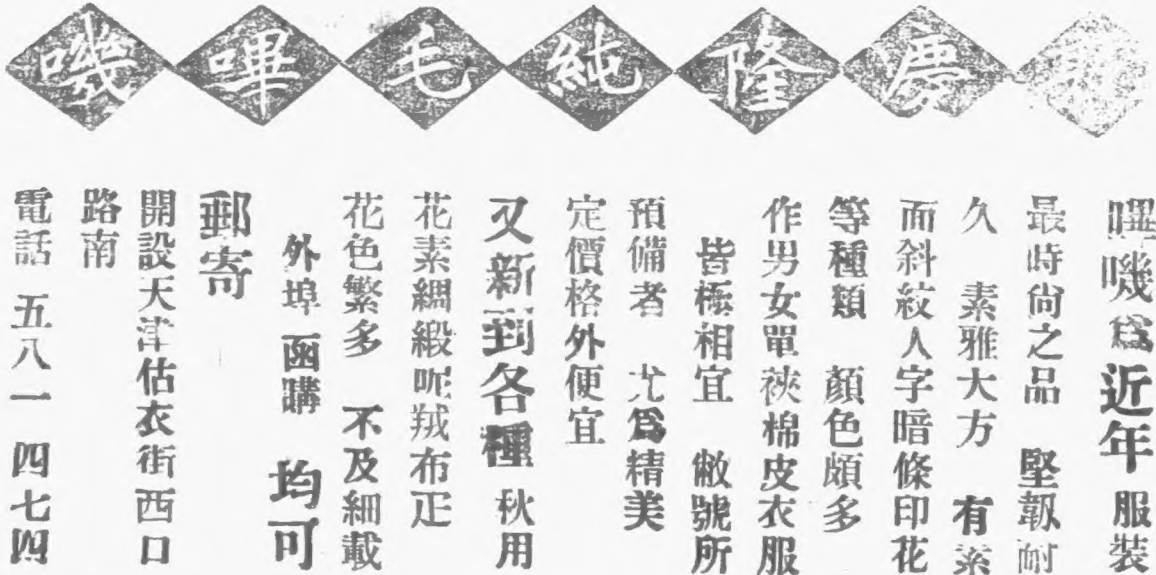 慶隆純毛嗶嘰
嗶嘰為近年服裝
最時尚之品 堅韌耐
久 素雅大方 有素
面斜紋人字暗條印花
等種類 顏色頗多
作男女單裌棉皮衣服
皆極相宜 敝號所
預備者 尤為精美
定價格外便宜
又新到各種秋用
花素綢緞呢羢布疋
花色繁多 不及細載
外埠函購 均可
郵寄
開設天津估衣街西口
路南
電話 五八一 四七四